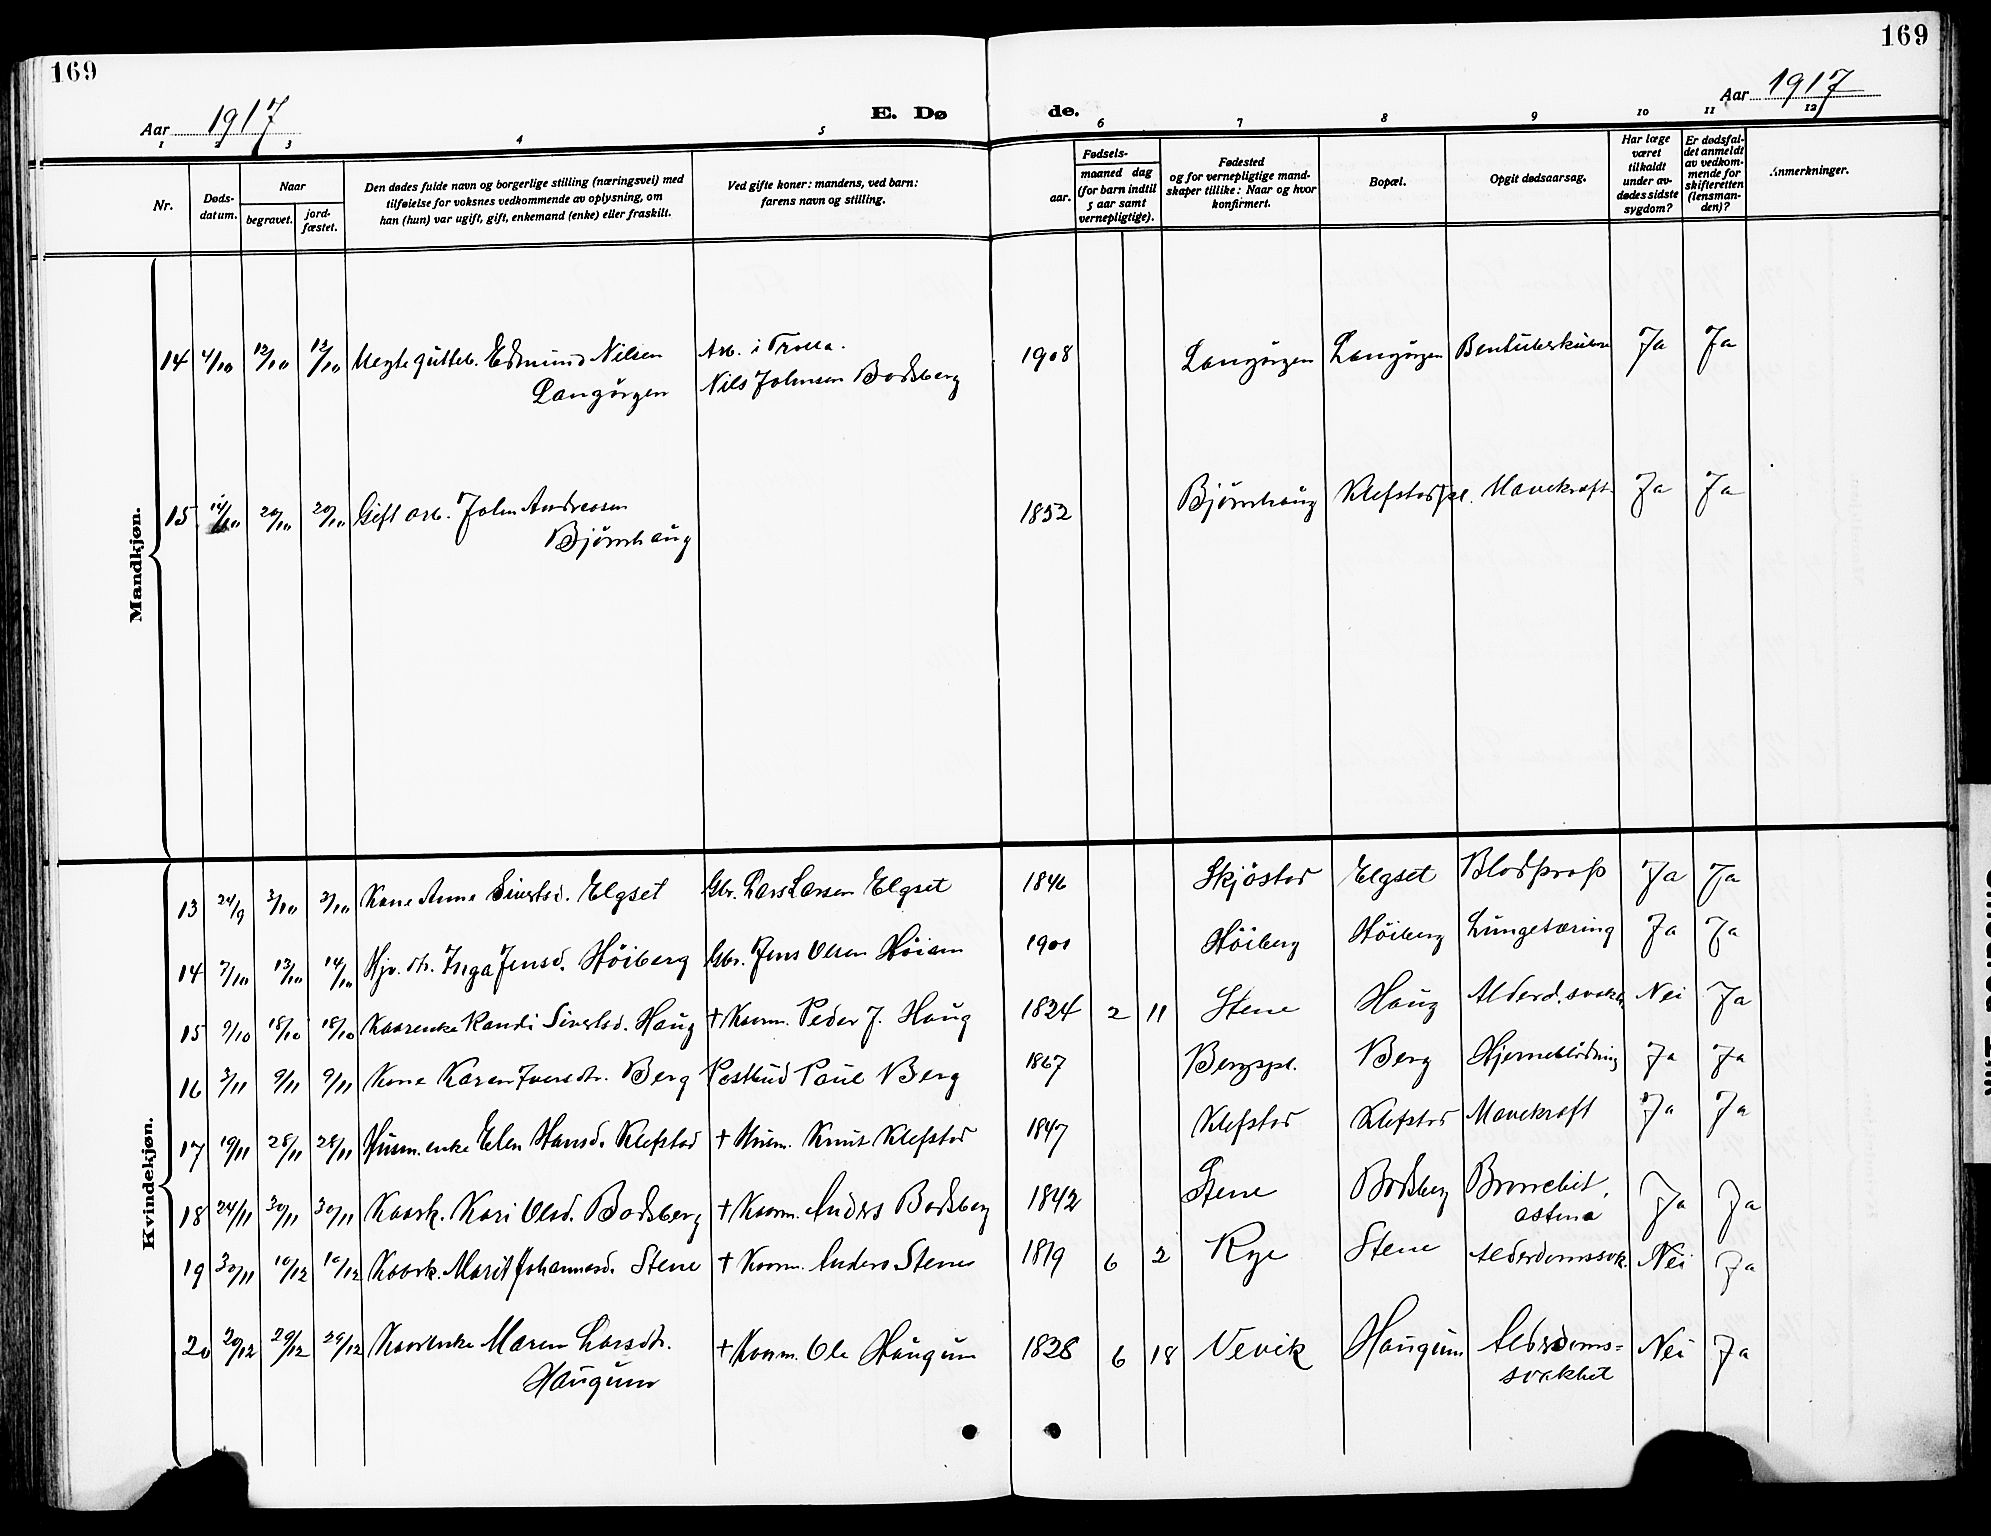 169
169
Aar 1917
E. Dø
de.
Aar 1917
1 2 3 4 5 6 7 8 9 10 11 12
Nr.
Døds-
datum.
Naar
begravet.
jord-
fæstet.
Den dødes fulde navn og borgerlige stilling (næringsvei) med
tilføielse for voksnes vedkommende av oplysning, om
han (hun) var ugift, gift, enkemand (enke) eller fraskilt.
Ved gifte koner: mandens, ved barn:
farens navn og stilling.
Fødsels-
aar.
maaned dag
(for barn indtil
5 aar samt
vernepligtige).
Fødested
og for vernepligtige mand-
skaper tillike: Naar og hvor
konfirmert.
Bopæl.
Opgit dødsaarsag.
Har læge
været
tilkaldt
under av-
dødes sidste
sygdom?
Er dødsfal-
det anmeldt
av vedkom-
mende for
skifteretten
(lensman-
den)?
Anmerkninger.
Mandkjøn.
14 4/10 12/10 12/10 Uegte gutteb. Edmund Nilsen Arb. i Trolla. 1908 Langørgen Langørgen Ja Ja
Langørgen Nils Johnsen Bodsberg
15 20/10 20/10 Gift arb. John Andreasen 1852 Bjørnhaug Klefstadpl. Mavekræft Ja Ja
Bjørnhaug
Kvindekjøn.
13 24/9 3/10 3/10 Kone Anne Sivertsd. Elgset Gbr. Lars Larsen Elgset 1846 Skjøstad Elgset Blodprop Ja Ja
14 7/10 13/10 14/10 Hjv. dtr. Inga Jensd. Høiberg Gbr. Jens Olsen Høiem 1901 Høiberg Høiberg Lungetæring Ja Ja
15 9/10 18/10 18/10 Kaarenke Randi Sivertsd. Haug † Kaarm. Peder J. Haug 1824 2 11 Stene Haug Alderd. svakh. Nei Ja
16 3/11 9/11 9/11 Kone Karen Iversdtr. Berg Postbud Paul Berg 1867 Bergspl. Berg Hjerneblødning Ja Ja
17 19/11 28/11 28/11 Husm.enke Elen Hansd. Klefstad † Husm. Knut Klefstad 1847 Klefstad Klefstad Mavekræft Ja Ja
18 24/11 30/11 30/11 Kaark. Kari Olsd. Bodsberg † Kaarm. Anders Bodsberg 1842 Stene Bodsberg Bronchit, Ja Ja
astma
19 30/11 10/12 10/12 Kaark. Marit Johannesd. Stene † Kaarm. Anders Stene 1819 6 2 Rye Stene Alderdomssvk. Nei Ja
20 20/12 29/12 29/12 Kaarenke Maren Larsdtr. † Kaarm. Ole Haugum 1828 6 18 Nevik Haugum Alderdoms= Nei Ja
Haugum svakhet